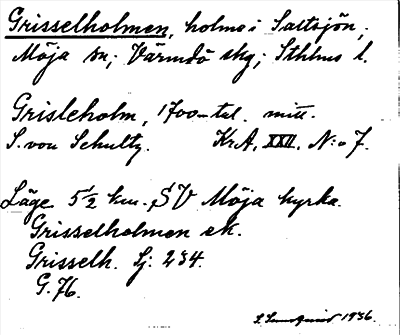 Grisselholmen, holme i Saltsjön;
Möja sn; Värmdö skg; Sthlms l.
Grisleholm, 1700-tal. mitt.
S. von Schultz. KrA, XXII, N:o 7.
Läge 5 1/2 km. SV Möja kyrka.
Grisselholmen ek.
Grisselh. Sj: 234.
G. 76.
1936.